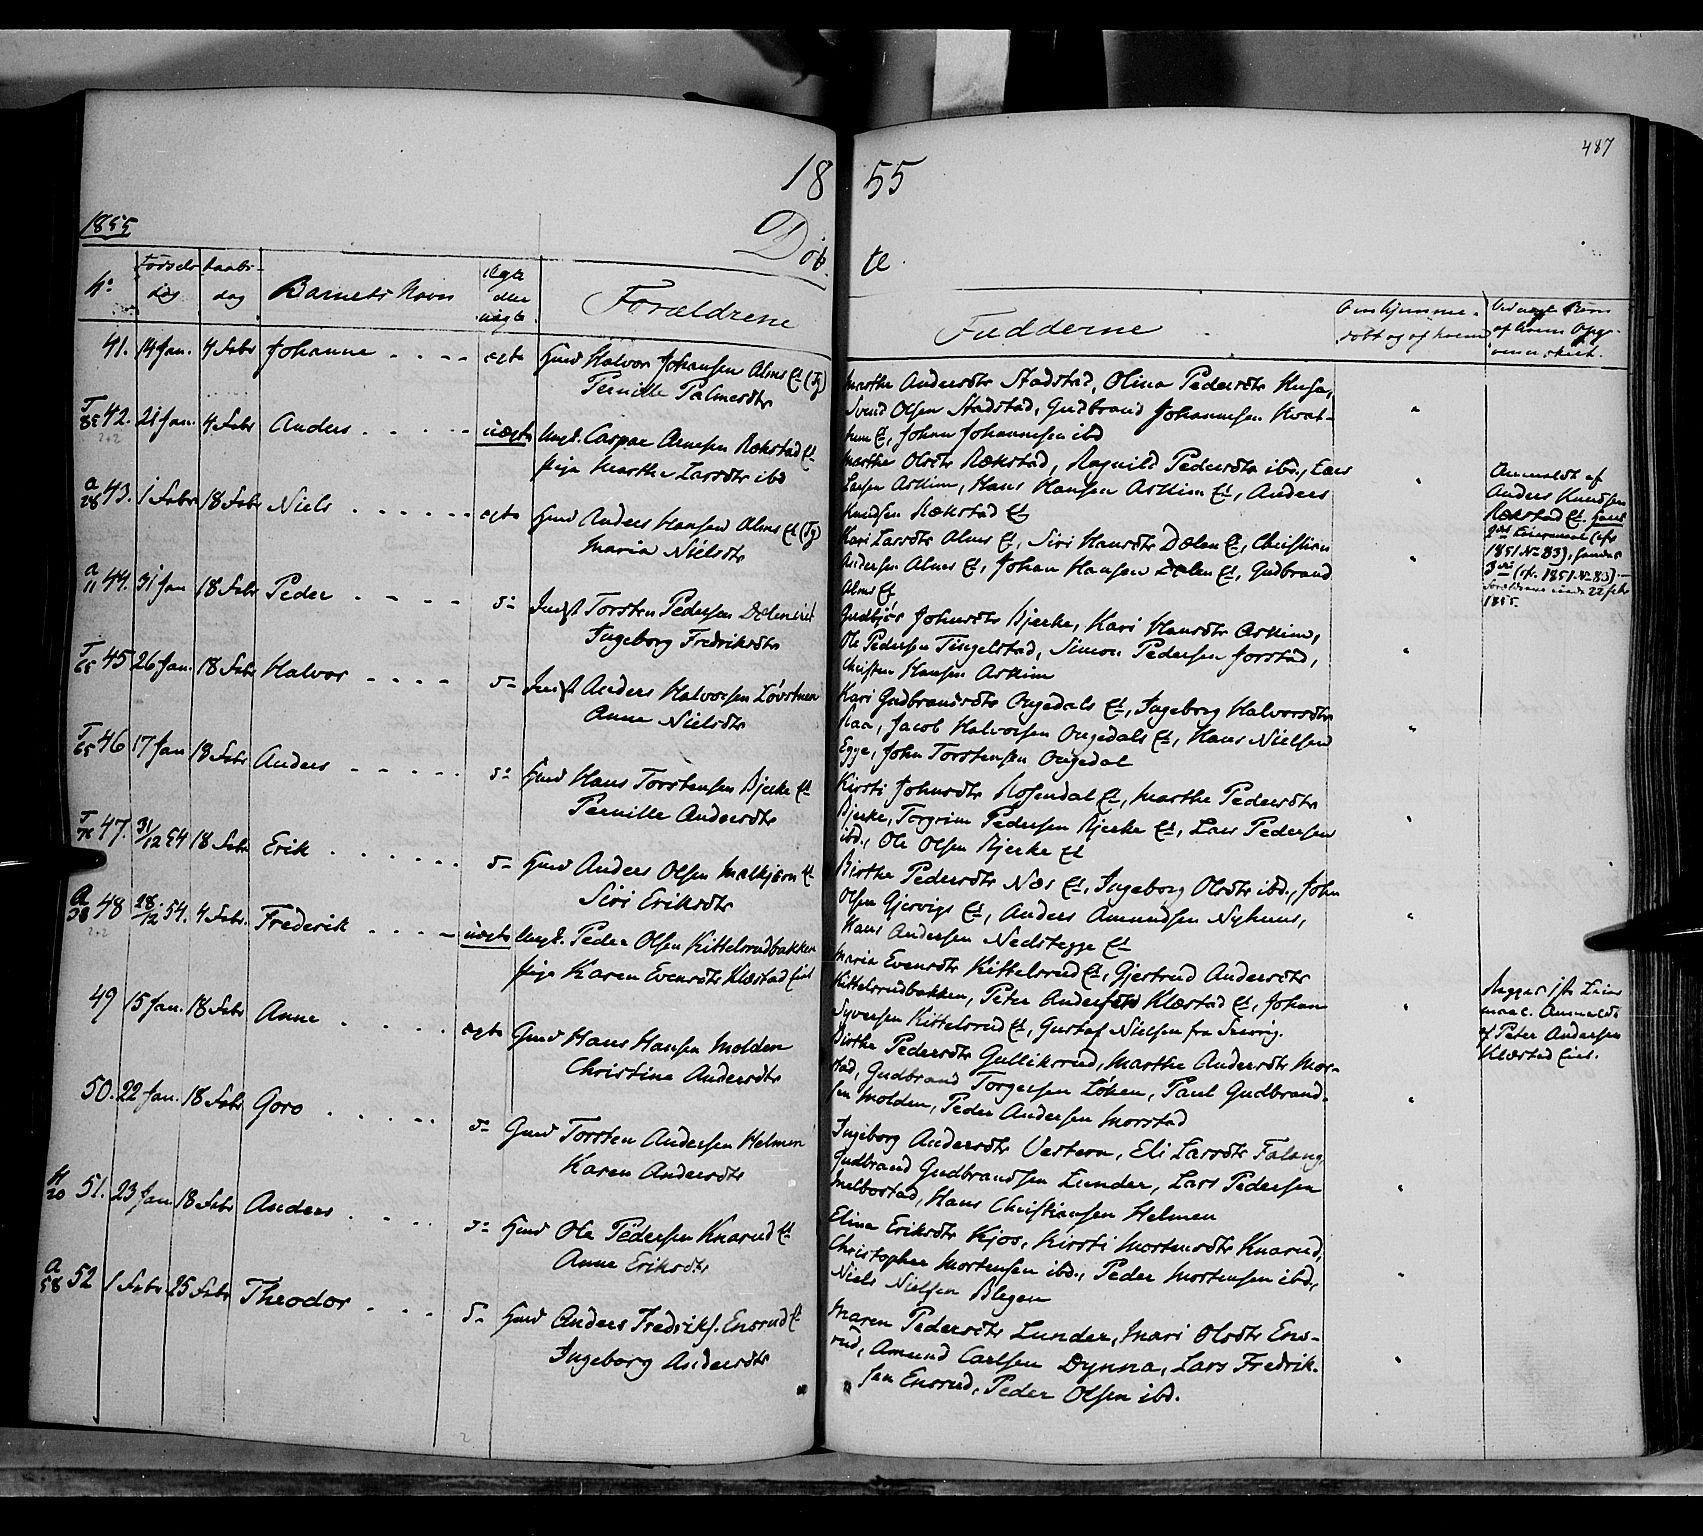 487
18 55
1855
Døb te.
No Fødsels dag Daabs- dag Barnets Navn Ægte eller uægte. Forældrene Fadderne Om hjemme- døbt og af hvem Ved uægte Børn af hvem Opg.
41. 14 Jan. 4 Febr Johanne . . . . ægte Gmd Halvor Johansen Alms Et (Tg)
Pernille Palmesdtr
Marthe Andersdtr Stadstad, Olina Pedersdtr Husa,
Svend Olsen Stadstad, Gudbrand Johannesen Kvat-
hun Et, Johan Johannesen ibd
T 85 42. 21 Jan. 4 Febr Anders . . . . . uægte Ungk. Caspar Arnesen Rækstad Et
pige Marthe Larsdtr ibd
2+2
Marthe Olsdtr Rækstad, Ragnild Pedersdtr ibd., Lars
Larsen Askim, Hans Hansen Askim Et, Anders
Knudsen Rækstad Et
Anmeldt af
Anders Knudsen
Rækstad Et.
1851 No 83),
3die (cfr. 1851 No 83) —
1855.
a 28 43. 1 Febr 18 Febr Niels . . . . . . ægte Gmd Anders Hansen Alms Et (Tg)
Maria Nielsdtr
Kari Larsdtr Alms Et, Siri Hansdtr Dælen Et, Christian
Andersen Alms Et, Johan Hansen Dælen Et, Gudbrand
Alms Et
a 11 44. 31 Jan 18 Febr Peder . . . . . do Indst Torsten Pedersen Dæleneiet
Ingeborg Fredriksdtr
Gudbjør Johnsdtr Bjerke, Kari Hansdtr Askim,
Ole Pedersen Tingelstad, Simon Pedersen Jorstad,
Christen Hansen Askim
T 65 45 26 Jan. 18 Febr Halvor . . . . do Indst Anders Halvorsen
Anne Nielsdtr
Kari Gudbrandsdtr Ongedals Et, Ingeborg Halvorsdtr
Raa, Jacob Halvorsen Ongedals Et, Hans Nielsen
Egge, John Torstensen Ongedal
T 65 46 17 Jan 18 Febr Anders . . . . . do Gmd Hans Torstensen Bjerke Et
Pernille Andersdtr
Kirsti Johnsdtr Rosendal Et, Marthe Pedersdtr
Bjerke, Torgrim Pedersen Bjerke Et, Lars Pedersen
ibd., Ole Olsen Bjerke Et
T 76 47. 31/12 54 18 Febr Erik . . . . . . do Gmd Anders Olsen Malkjærn Et
Siri Eriksdtr
Birthe Pedersdtr Næs Et, Ingeborg Olsdtr ibd., John
Olsen Gjervigs Et, Anders Amundsen Nyhuus,
Hans Andersen Nedstegge Et
A 38 48 28/12 54. 4 Febr. Frederik . . . . uægte Ungk. Peder Olsen Kittelsrudbakken
pige Karen Evensdtr Klæstad Eiet
2+2
Maria Evensdtr Kittelsrud Et, Gjertrud Andersdtr
Kittelsrudbakken, Peter Andersen Klæstad Et, Johan
Syversen Kittelsrud Et, Gustaf Nielsen fra Sverrig.
Begges 1ste Leier
maal. Anmeldt
af Peter Andersen
Klæstad Eiet.
49 15 Jan. 18 Febr Anne . . . . . ægte Gmd Hans Hansen Molden
Christine Andersdtr
Birthe Pedersdtr Gulliksrud, Marthe Andersdtr Mor-
stad, Gudbrand Torgersen Løken, Paul Gudbrand-
sen Molden, Peder Andersen Morstad
50. 22 Jan. 18 Febr Goro . . . . . do Gmd Torsten Andersen Helmen
Karen Andersdtr
Ingeborg Andersdtr Vestern, Eli Larsdtr Falang,
Gudbrand Gudbrandsen Lunder, Lars Pedersen
Melbostad, Hans Christiansen Helmen
H 20 51. 23 Jan 18 Febr Anders . . . . do Gmd Ole Pedersen Knarud Et
Anne Eriksdtr
Elina Eriksdtr Kjos, Kirsti Mortensdtr Knarud,
Christopher Mortensen ibd., Peder Mortensen ibd.,
Niels Nielsen Blegen
A 58 52 1 Febr 25 Febr Theodor . . . . do Gmd Anders Fredriks. Ensrud Et
Ingeborg Andersdtr
Maren Pedersdtr Lunder, Mari Olsdtr Ens-
rud, Amund Carlsen Dynna, Lars Fredrik-
sen Ensrud, Peder Olsen ibd.